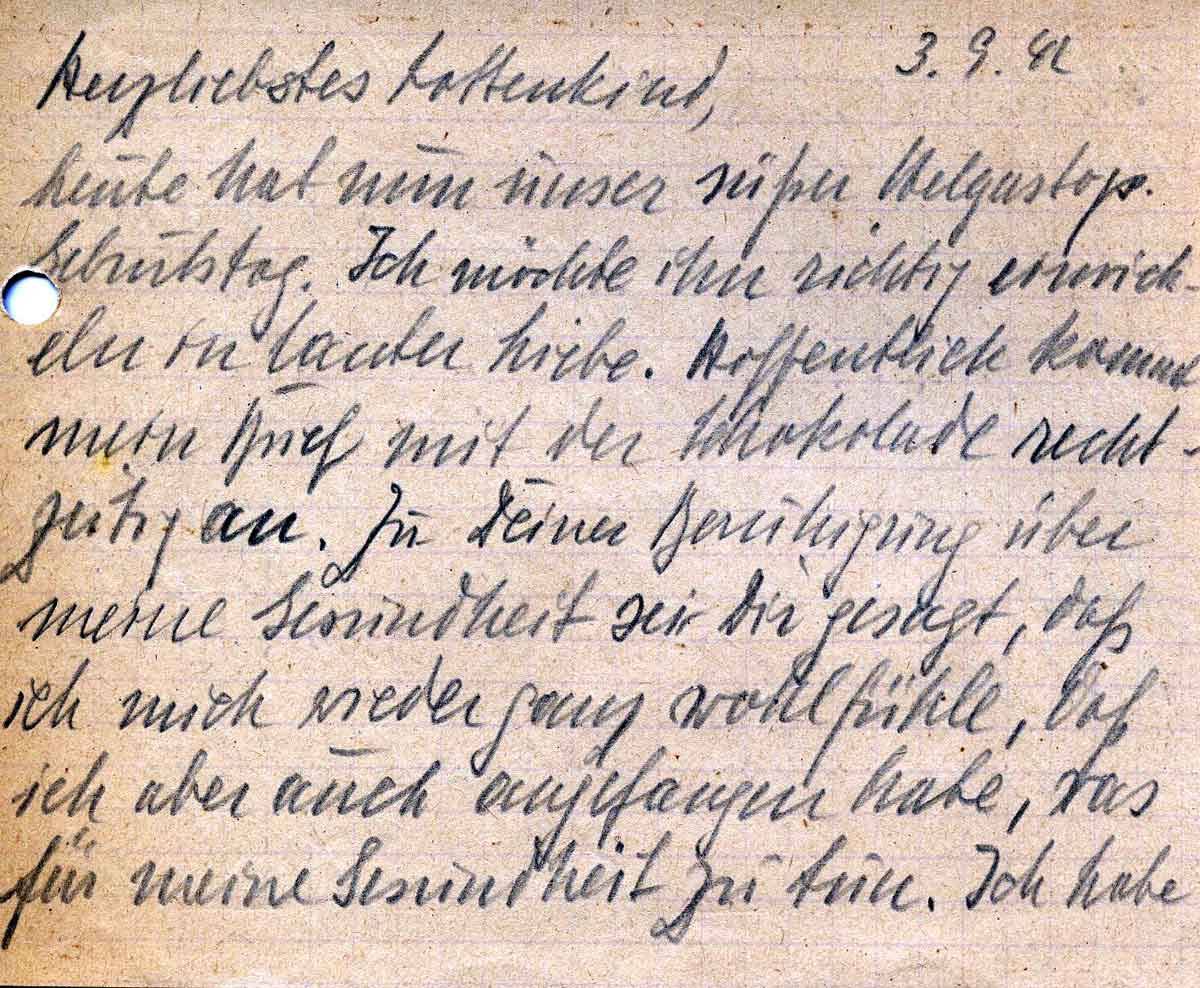 3. 9. 42
Herzliebstes Lottenkind,
heute hat nun unser süßer Helgastops.
Geburtstag. Ich möchte ihn richtig einwick-
eln in lauter Liebe. Hoffentlich kommt
mein Brief mit der Schokolade recht-
zeitig an. Zu Deiner Beruhigung über
meine Gesundheit sei Dir gesagt, daß
ich mich wieder ganz wohl fühle, daß
ich aber auch angefangen habe, was
für meine Gesundheit zu tun. Ich habe